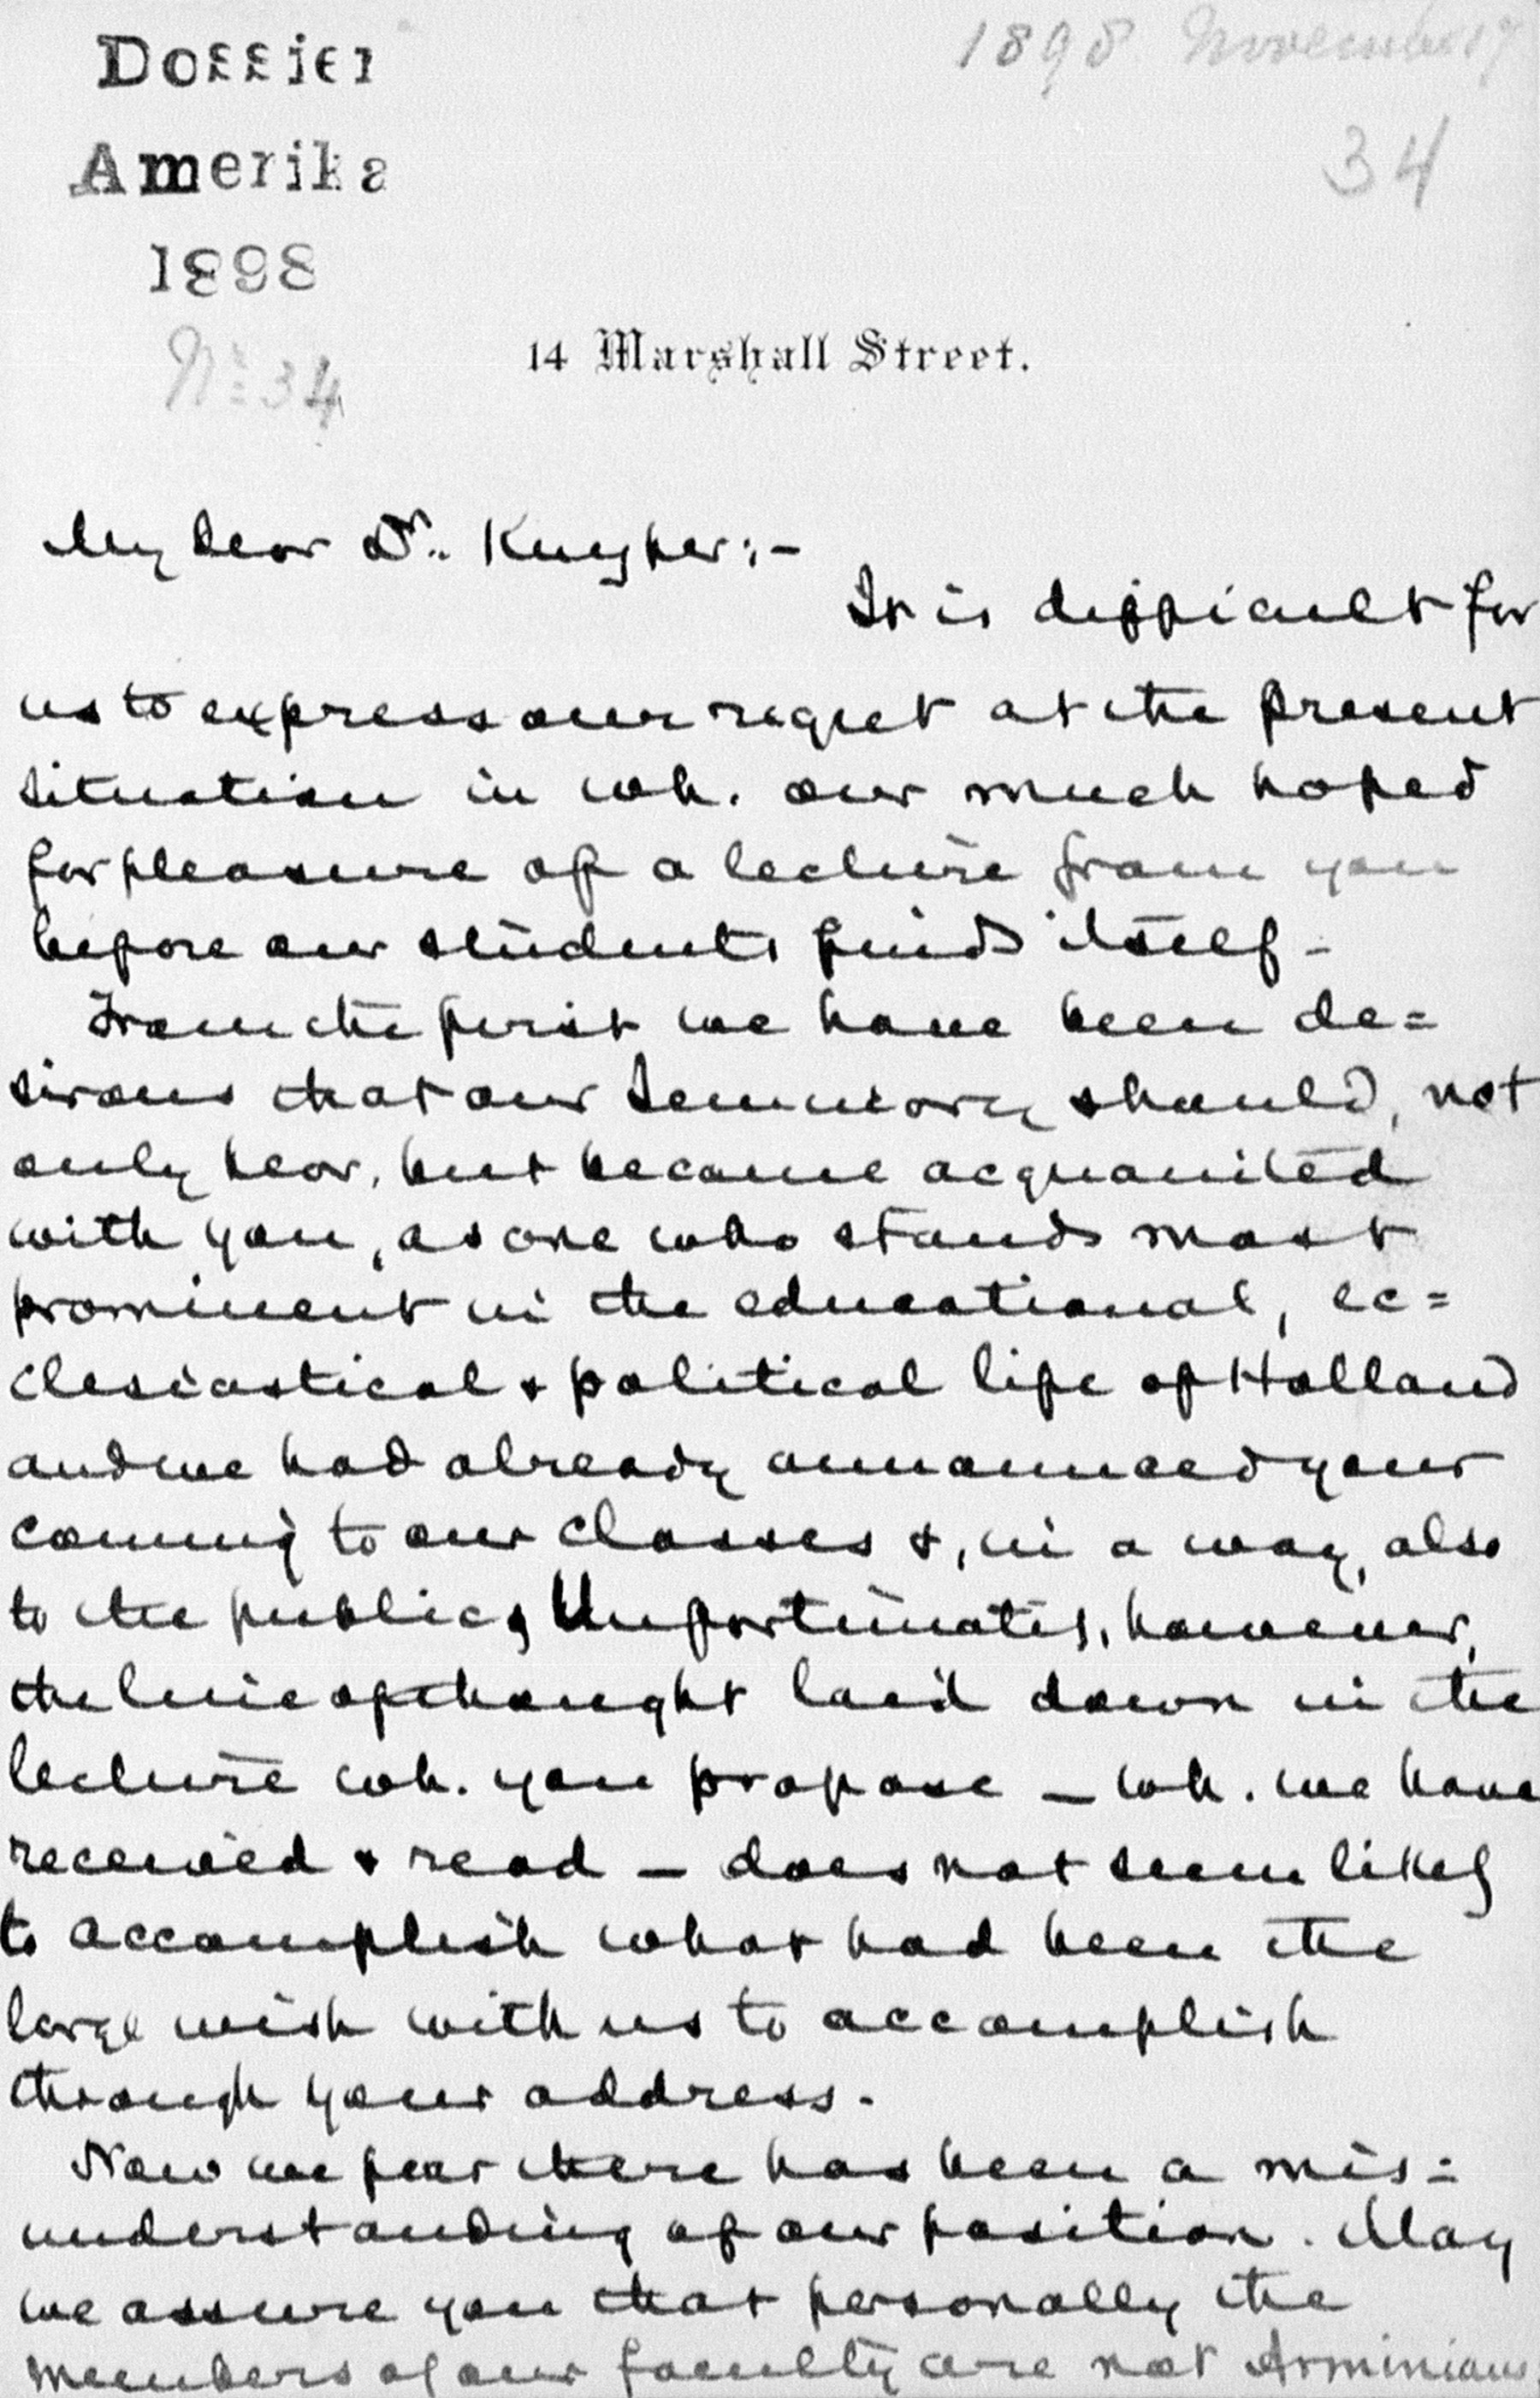 Dossier
Amerika
1898
No 34
1898 November 17
34
14 Marshall Street.
My dear Dr. Kuyper:-
It is difficult for
us to express our regret at the present
situation in wh. our much hoped
for pleasure of a lecture from you
before our students finds itself -
From the first we have been de=
sirous that our Seminary should, not
only hear, but become acquainted
with you, as one who stands most
prominent in the educational, ec=
clesiastical & political life of Holland
and we had already announced your
coming to our classes &, in a way, also
to the public, Unfortunately, however,
the line of thought laid down in the
lecture wh. you propose — wh. we have
received & read — does not seem likely
to accomplish what had been the
large wish with us to accomplish
through your address.
Now we fear there has been a mis=
understanding of our position. May
we assure you that personally the
members of our faculty are not Arminians